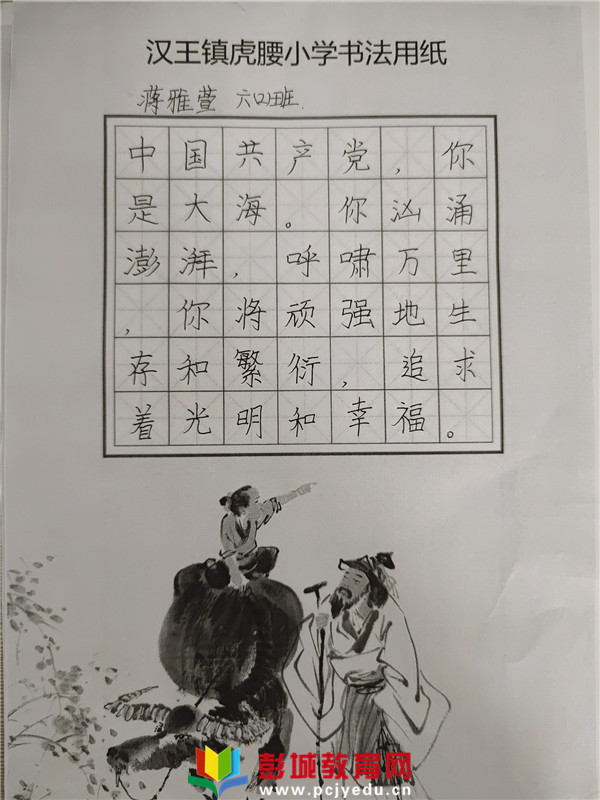 汉王镇虎腰小学书法用纸
蒋雅萱 六(2)班
中国共产党，你
是大海。你汹涌
澎湃，呼啸万里
，你将顽强地生
存和繁衍，追求
着光明和幸福。
彭城教育网
www.pcjyedu.cn